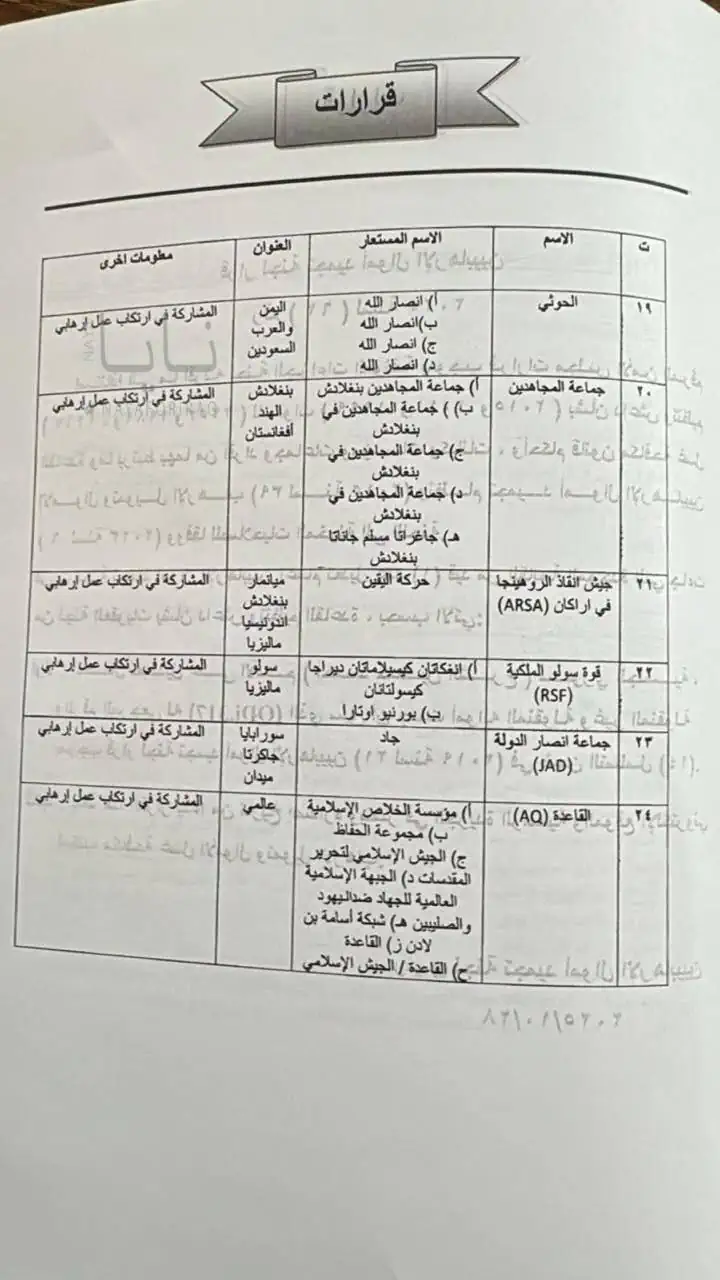 قرارات
ت	الاسم	الاسم المستعار	العنوان	معلومات اخرى
١٩	الحوثي	أ) انصار الله	اليمن	المشاركة في ارتكاب عمل إرهابي
ب)انصار الله	والعرب
ج) انصار الله	السعودين
د) انصار الله
٢٠	جماعة المجاهدين	أ) جماعة المجاهدين بنغلانش	بنغلادش	المشاركة في ارتكاب عمل إرهابي
ب) ) جماعة المجاهدين في	الهند
بنغلانش	أفغانستان
ج) جماعة المجاهدين في
بنغلانش
د) جماعة المجاهدين في
بنغلانش
هـ) جاغراتا مسلم جاناتا
بنغلانش
٢١	جيش انقاذ الروهينجا	حركة اليقين	ميانمار	المشاركة في ارتكاب عمل إرهابي
في اراكان (ARSA)	بنغلادش
اندونيسيا
ماليزيا
٢٢	قوة سولو الملكية	أ) انغكاتان كيسيلاماتان ديراجا	سولو	المشاركة في ارتكاب عمل إرهابي
(RSF)	كيسولتانان	ماليزيا
ب) بورنيو اوتارا
٢٣	جماعة انصار الدولة	جاد	سورابايا	المشاركة في ارتكاب عمل إرهابي
(JAD)	جاكرتا
ميدان
٢٤	القاعدة (AQ)	أ) مؤسسة الخلاص الإسلامية	عالمي	المشاركة في ارتكاب عمل إرهابي
ب) مجموعة الحفاظ
ج) الجيش الإسلامي لتحرير
المقدسات د) الجبهة الإسلامية
العالمية للجهاد ضداليهود
والصليبين هـ) شبكة أسامة بن
لادن ز) القاعدة
ح) القاعدة / الجيش الإسلامي